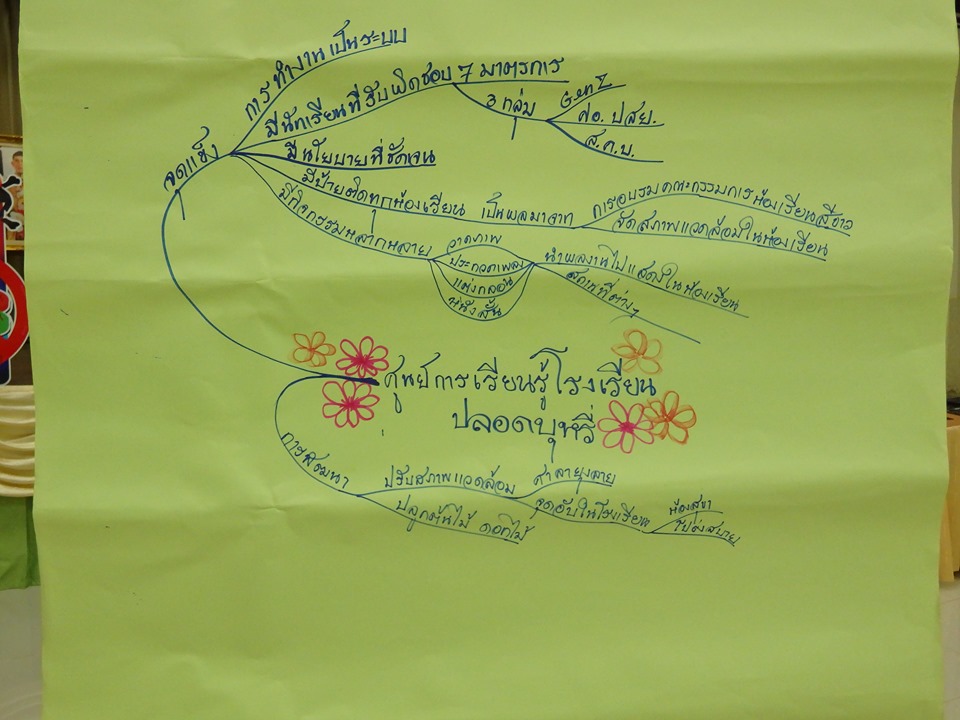 การทำงานเป็นระบบ
มีนักเรียนที่รับผิดชอบ 7 มาตรการ
3 กลุ่ม
GenZ
ศอ. ปสย.
ส.ค.บ.
จุดแข็ง
มีนโยบายที่ชัดเจน
มีป้ายติดทุกห้องเรียน เป็นผลมาจาก
การอบรมคณะกรรมการห้องเรียนสีขาว
จัดสภาพแวดล้อมในห้องเรียน
มีกิจกรรมหลากหลาย
วาดภาพ
ประกวดเพลง
แต่งกลอน
หนังสั้น
นำผลงานไปแสดงในห้องเรียน
สถานที่ต่างๆ
ศูนย์การเรียนรู้โรงเรียน
ปลอดบุหรี่
การพัฒนา
ปรับสภาพแวดล้อม
ศาลายุงลาย
จุดอับในโรงเรียน
ห้องสุขา
โปร่งสบาย
ปลูกต้นไม้ ดอกไม้